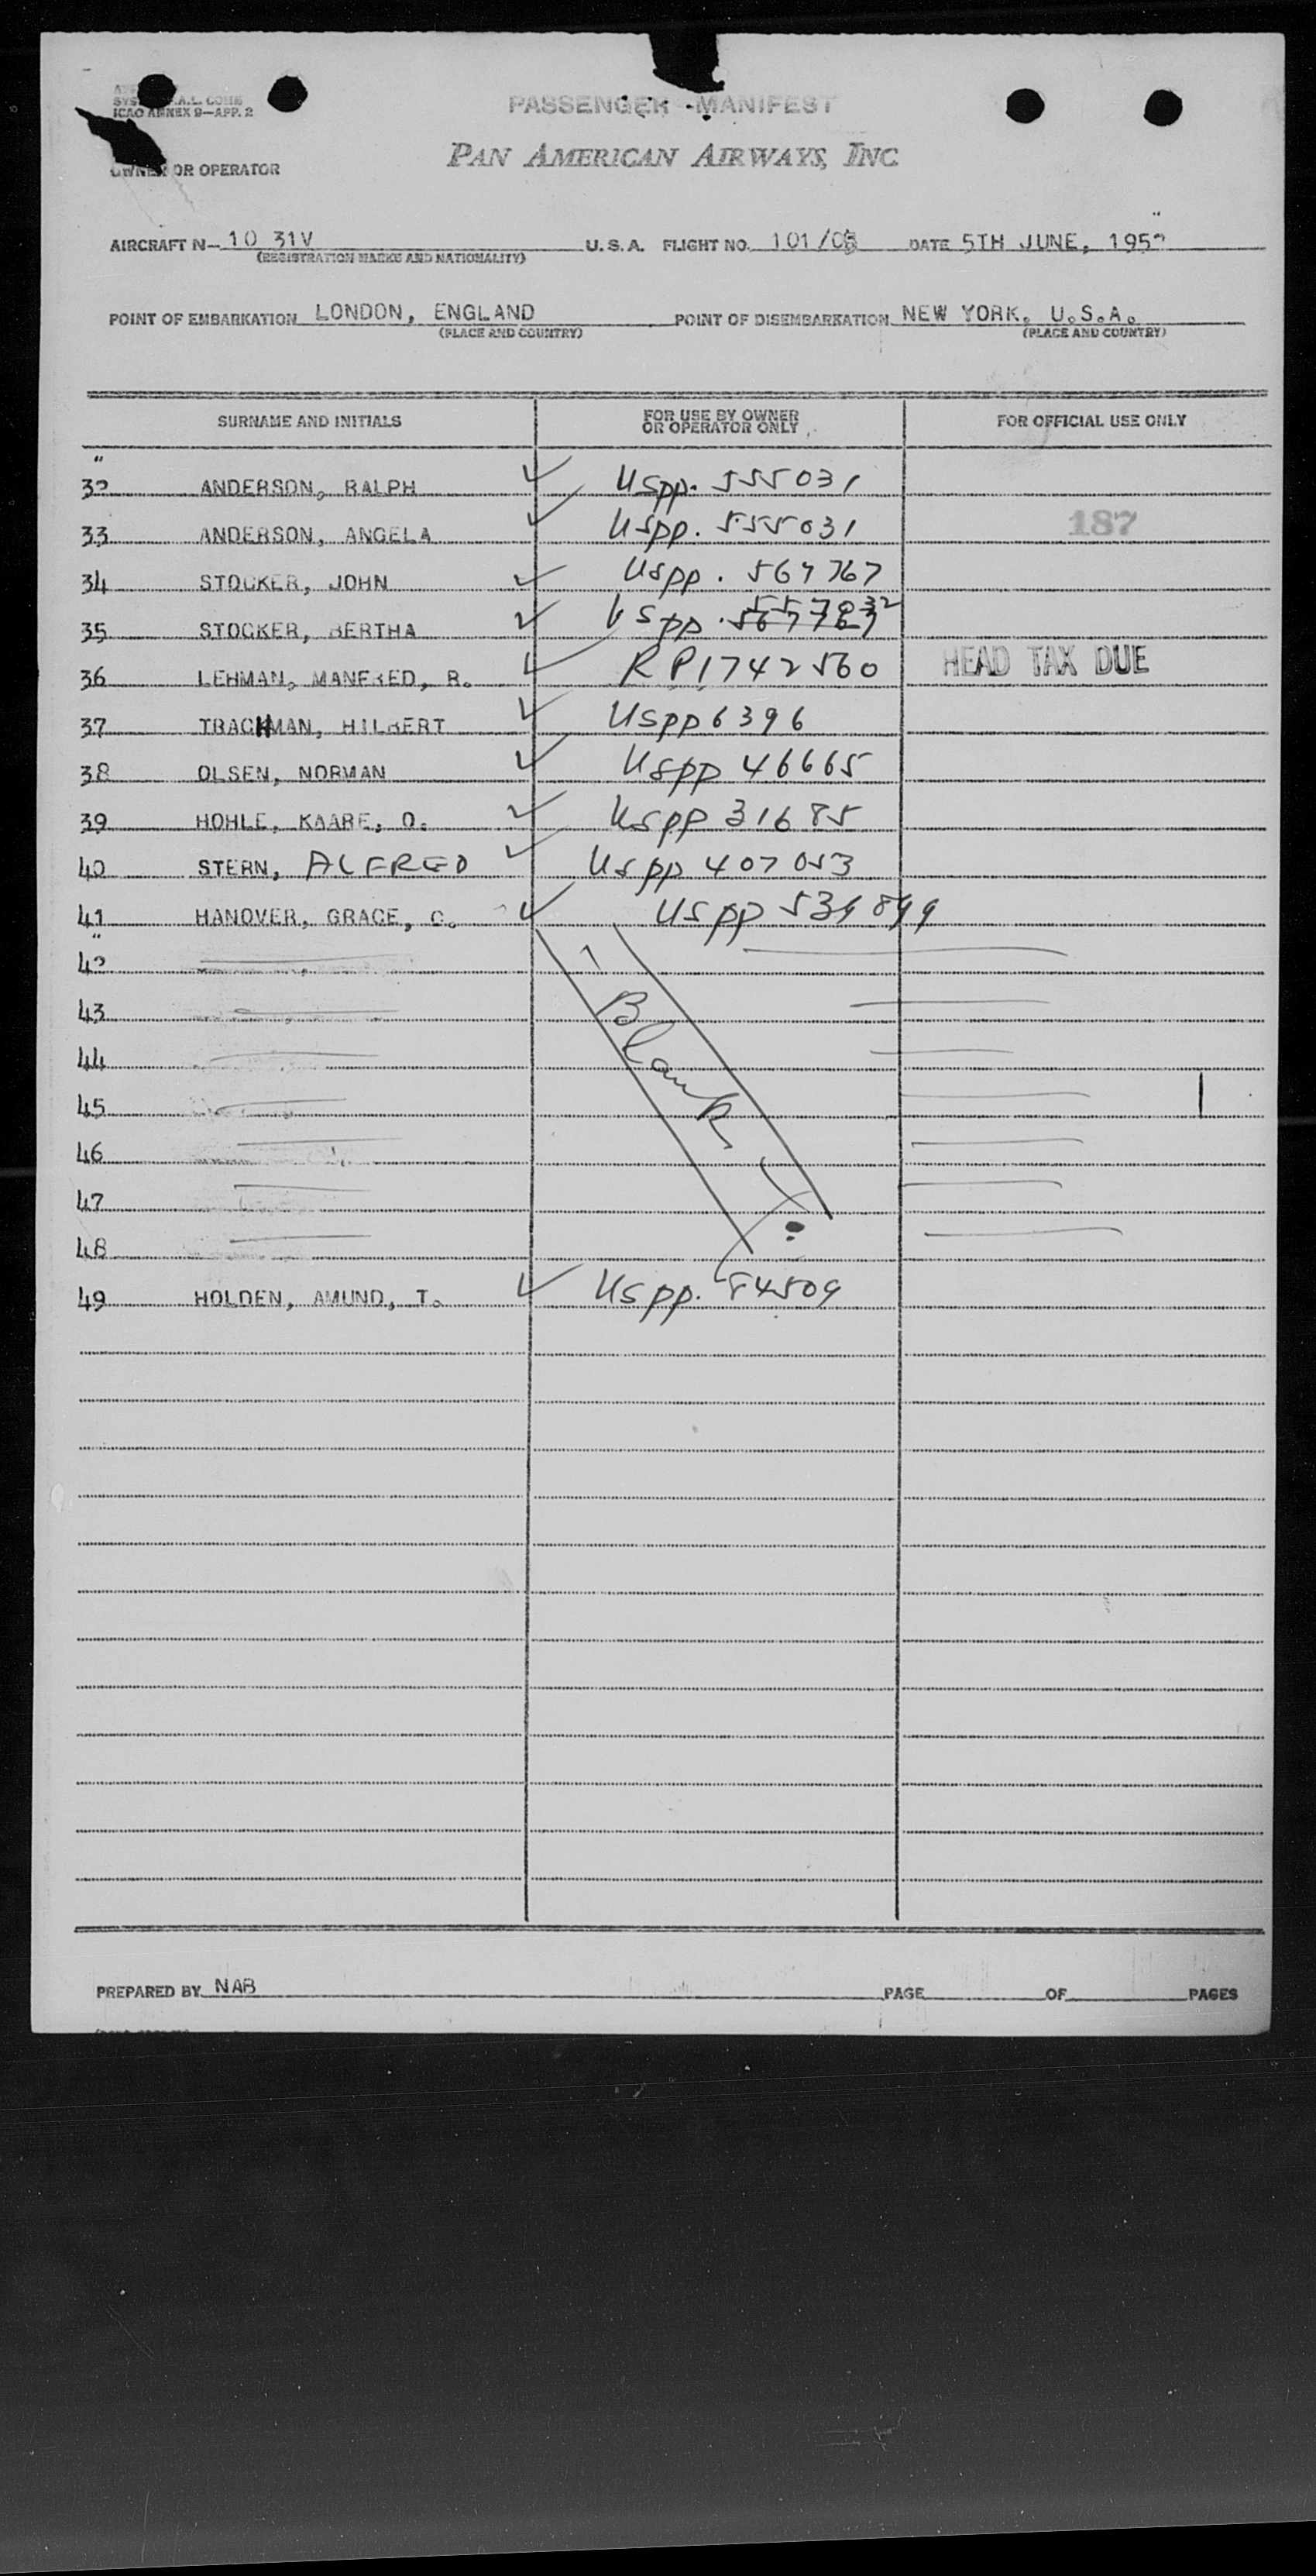 ICAO ANNEX 9—APP. 2
PASSENGER MANIFEST
PAN AMERICAN AIRWAYS, INC
OWNER OR OPERATOR
AIRCRAFT N— 10 31V U. S. A. FLIGHT NO. 101/ DATE 5TH JUNE, 195
(REGISTRATION MARKS AND NATIONALITY)
POINT OF EMBARKATION LONDON, ENGLAND POINT OF DISEMBARKATION NEW YORK, U.S.A.
(PLACE AND COUNTRY) (PLACE AND COUNTRY)
SURNAME AND INITIALS FOR USE BY OWNER OR OPERATOR ONLY FOR OFFICIAL USE ONLY
32 ANDERSON, RALPH ✓ USpp. 555031
33 ANDERSON, ANGELA ✓ USpp. 555031 187
34 STOCKER, JOHN ✓ USpp. 567767
35 STOCKER, BERTHA ✓ USpp.
36 LEHMAN, MANFRED, R. ✓ RP1742560 HEAD TAX DUE
37 TRACHMAN, HILBERT ✓ USpp 6396
38 OLSEN, NORMAN ✓ USpp 46665
39 HOHLE, KAARE, O. ✓ USpp 31685
40 STERN, ALFRED ✓ USpp 407053
41 HANOVER, GRACE, C. ✓ USpp 539899
42
43
Blank
44
45
46
47
48
49 HOLDEN, AMUND, T. ✓ USpp. 84509
PREPARED BY NAB PAGE OF PAGES